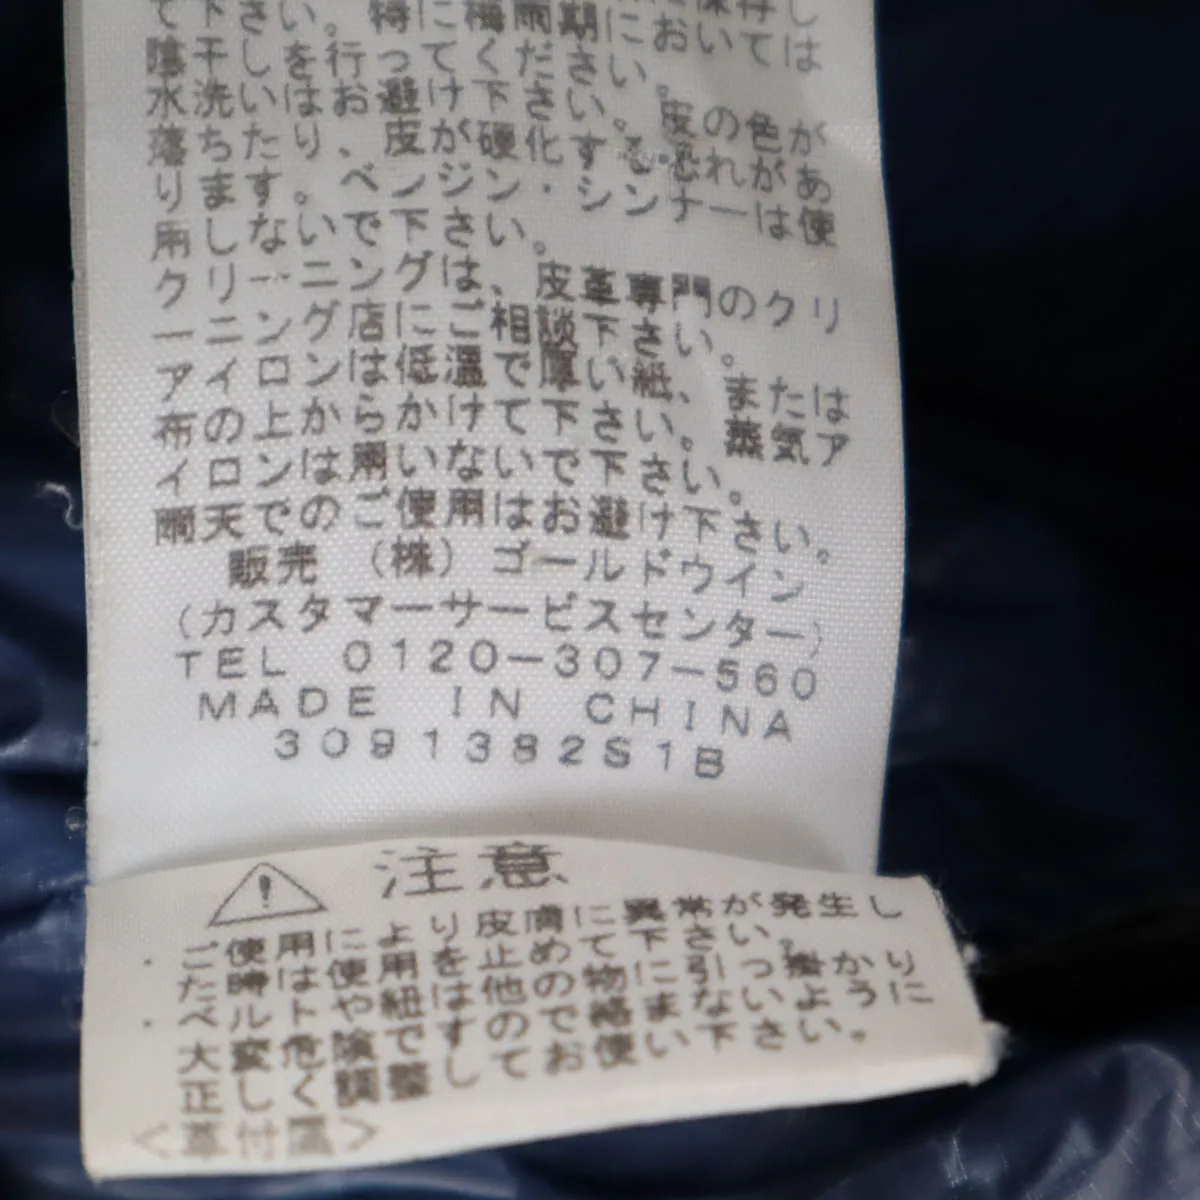 て下さい。特に梅雨期に
陰干しを行ってください。
水洗いはお避け下さい。皮の色が
落ちたり、皮が硬化する恐れがあ
ります。ベンジン・シンナーは使
用しないで下さい。
クリーニングは、皮革専門のクリ
ーニング店にご相談下さい。
アイロンは低温で厚い紙、または
布の上からかけて下さい。蒸気ア
イロンは用いないで下さい。
雨天でのご使用はお避け下さい。
販売 (株) ゴールドウイン
(カスタマーサービスセンター)
TEL 0120-307-560
MADE IN CHINA
3091382S1B
注意
・ご使用により皮膚に異常が発生し
た時は使用を止めて下さい。
・ベルトや紐は他の物に引っ掛かり
大変危険ですので絡まないように
正しく調整してお使い下さい。
<革付属>